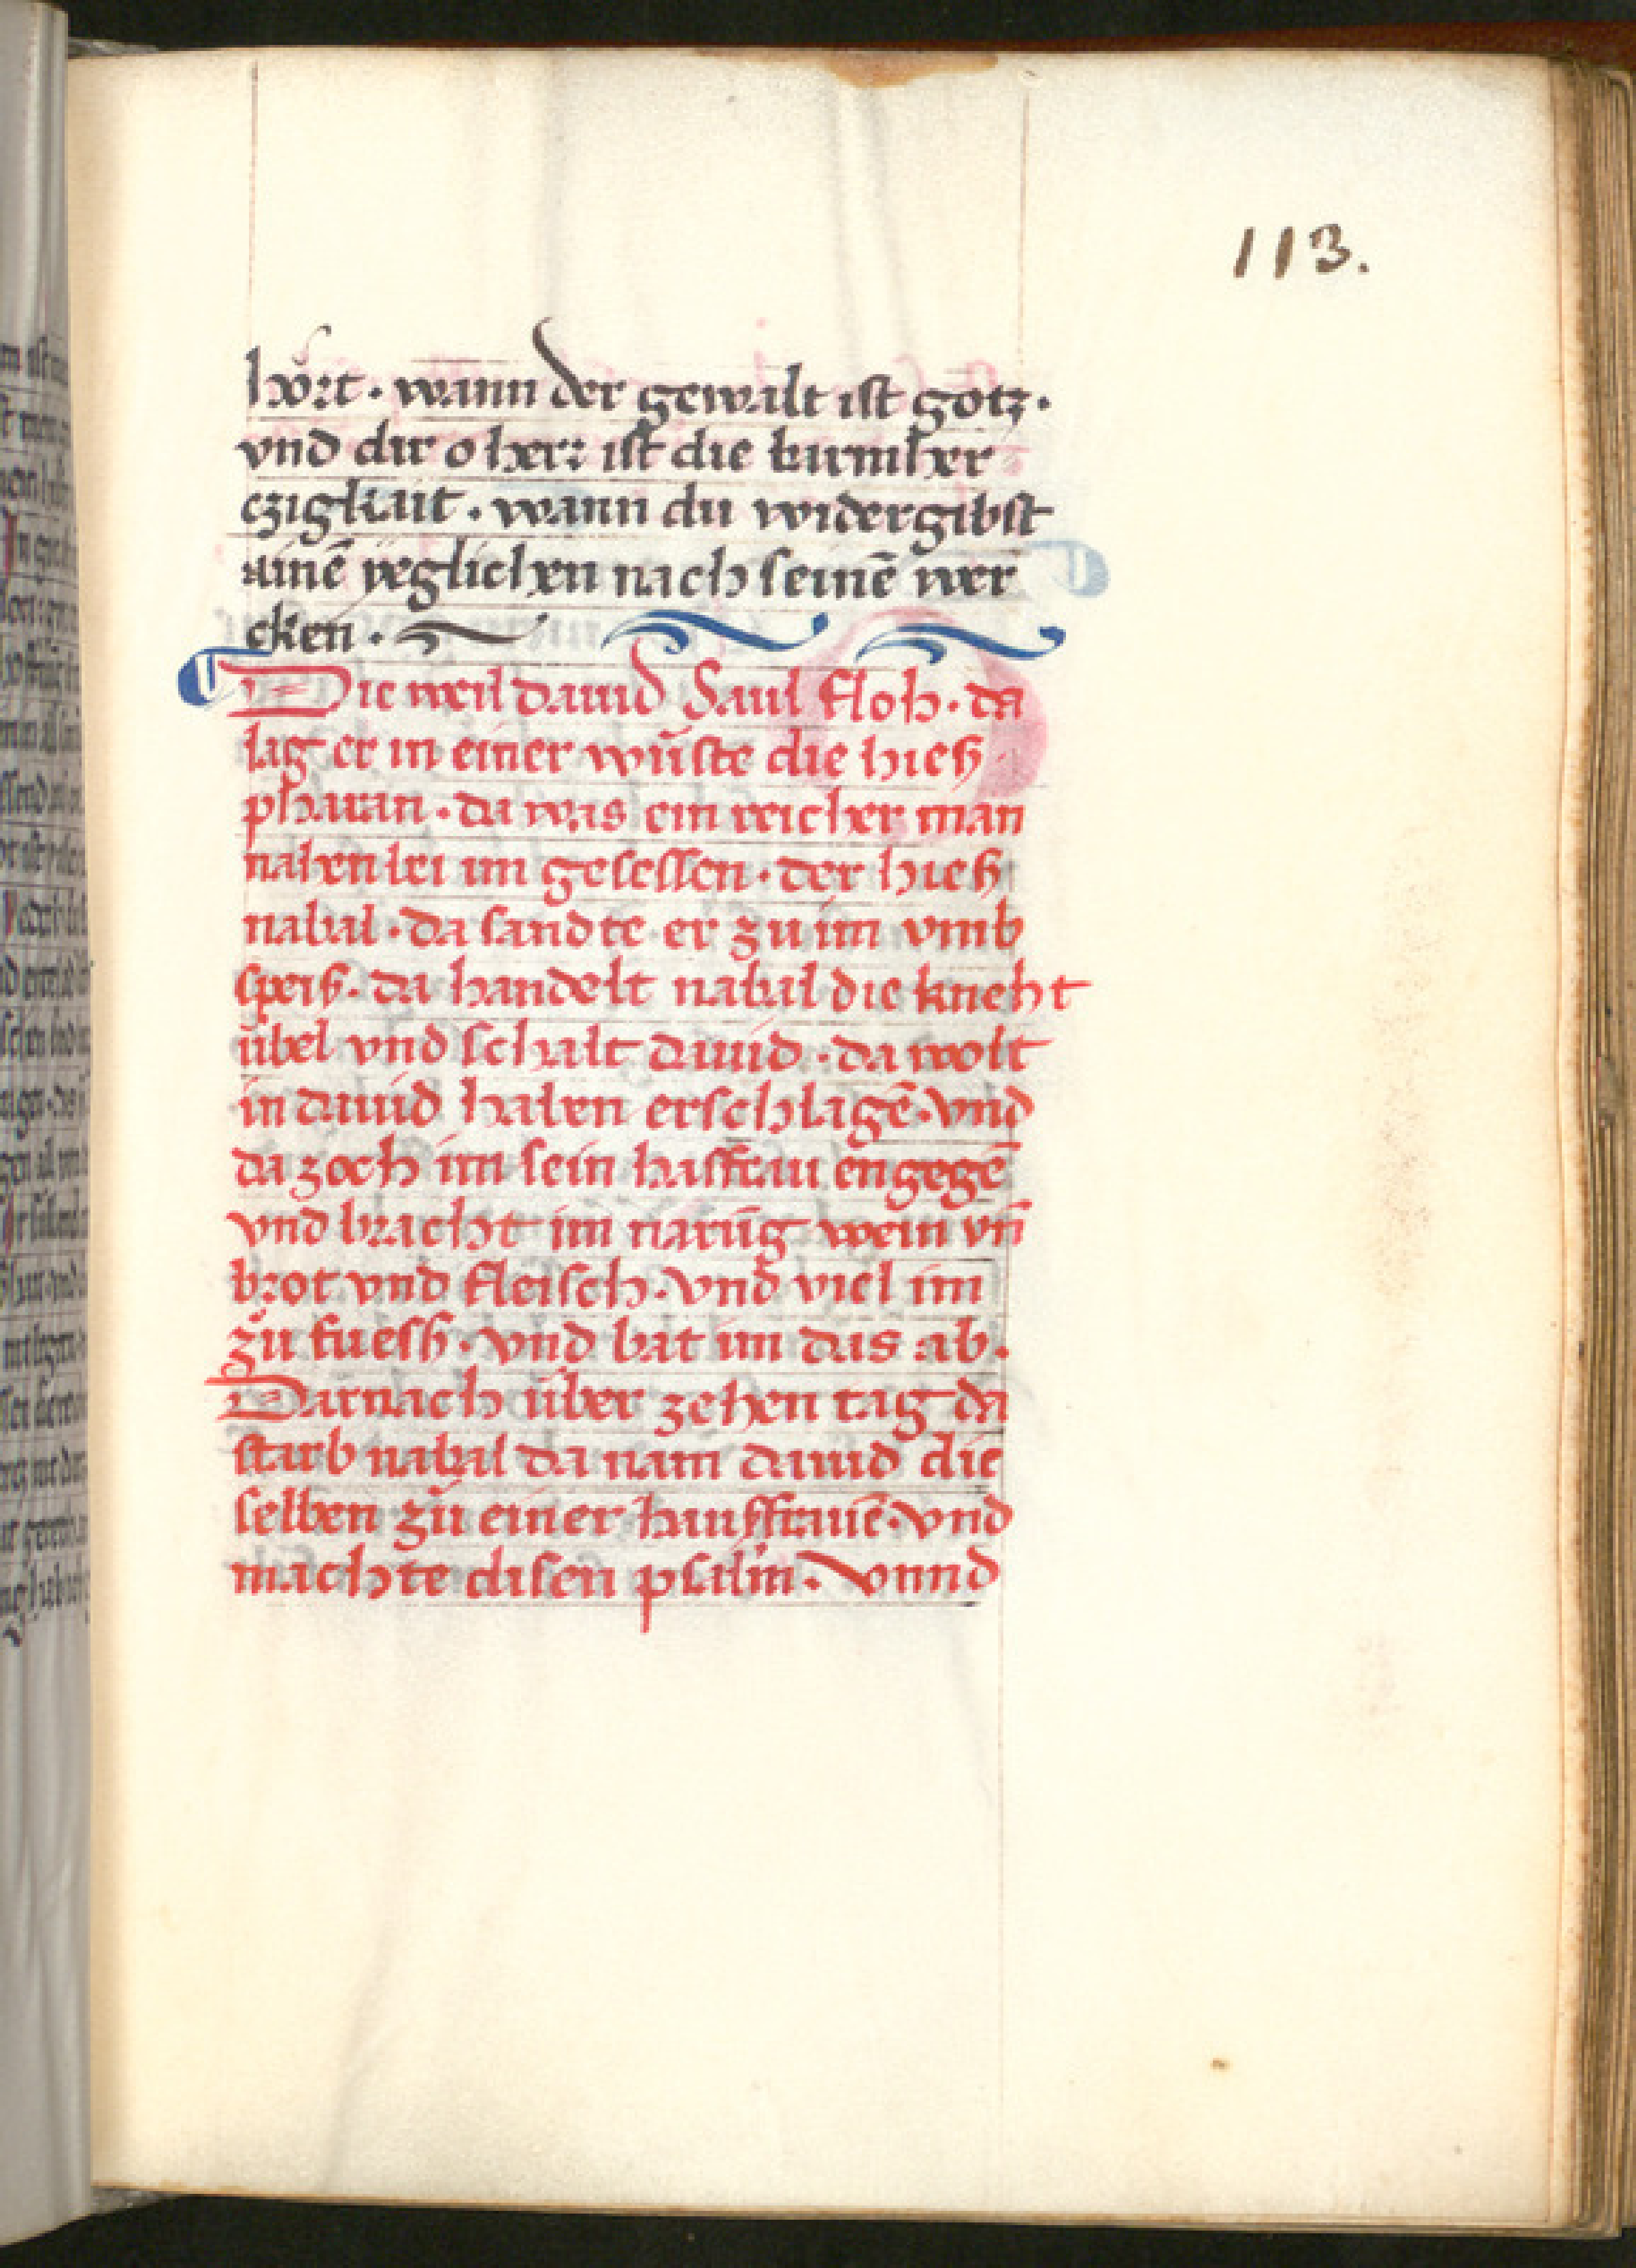 113.
hört. wann der gewalt ist gotz.
vnd dir o herr ist die barmher
czigkait. wann du widergibst
ainē yeglichen nach seinē wer
cken.
Die weil dauid Saul floh. da
lag er in einer wüste die hieß
pharan. da was ein reicher man
nahen bei im gesessen. der hieß
nabal. da sandte er zu im vmb
speiß. da handelt nabal die kneht
übel vnd schalt dauid. da wolt
in dauid haben erschlagē. vnd
da zoch im sein hasfrau engegē
vnd bracht im narūg wein vn̄
brot vnd fleisch. vnd viel im
zů fuesß. vnd bat im das ab.
Darnach über zehen tag da
starb nabal da nam dauid die
selben zů einer haußfrauē. vnd
machte disen psalm. Vnnd